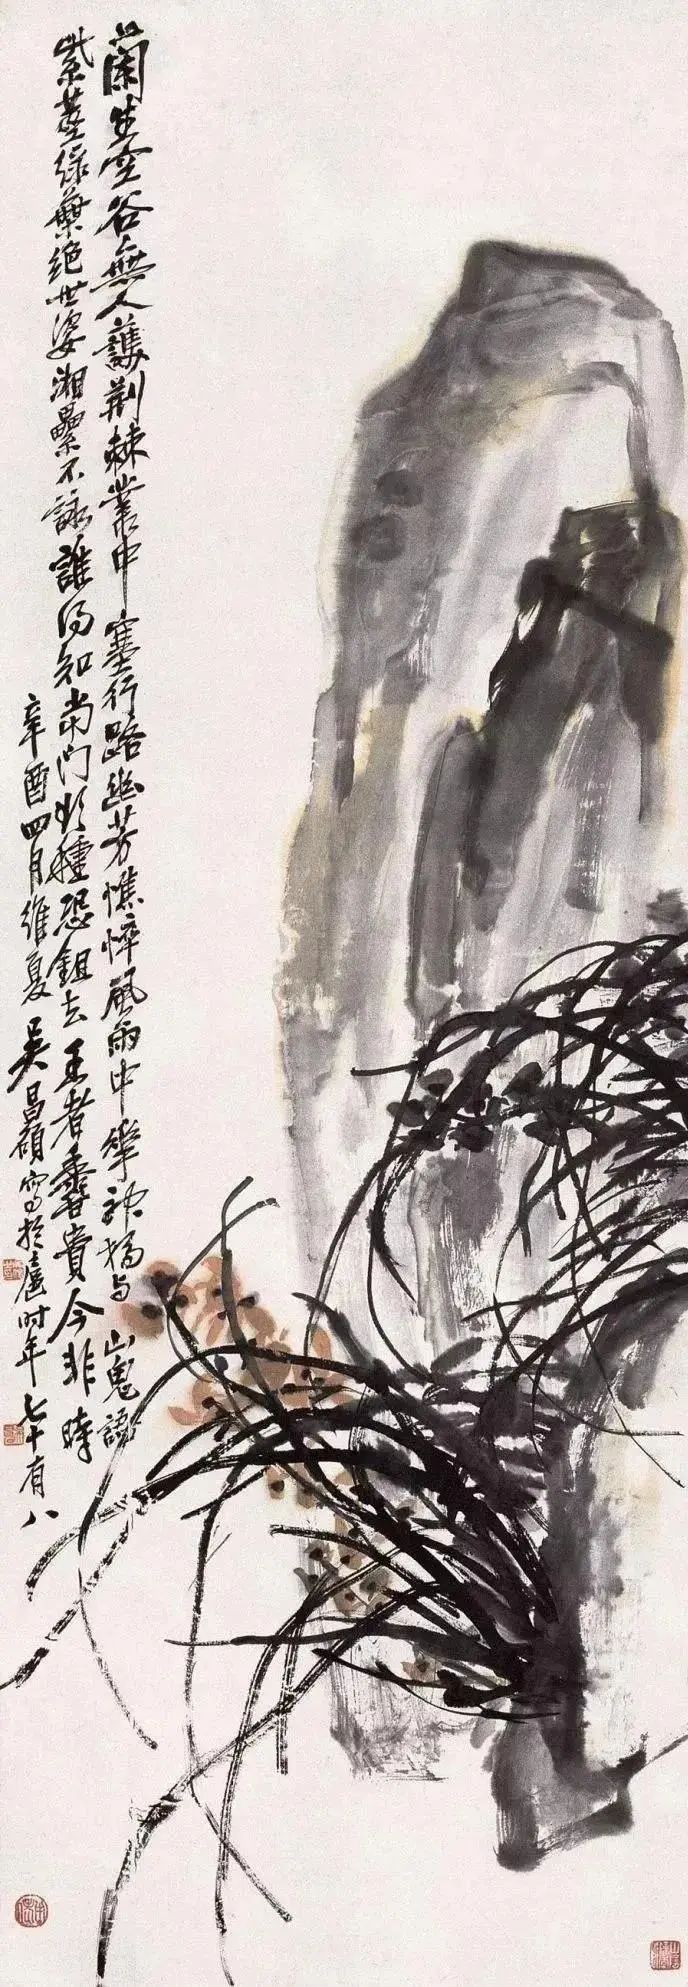 蘭生空谷無人護荆棘叢中塞行路幽芳憔悴風雨中華神獨與山鬼語
紫莖綠葉絕世姿湘纍不詠誰得知當門欲種恐鉏去王者香貴今非時
辛酉四月維夏吳昌碩寫於扈時年七十有八